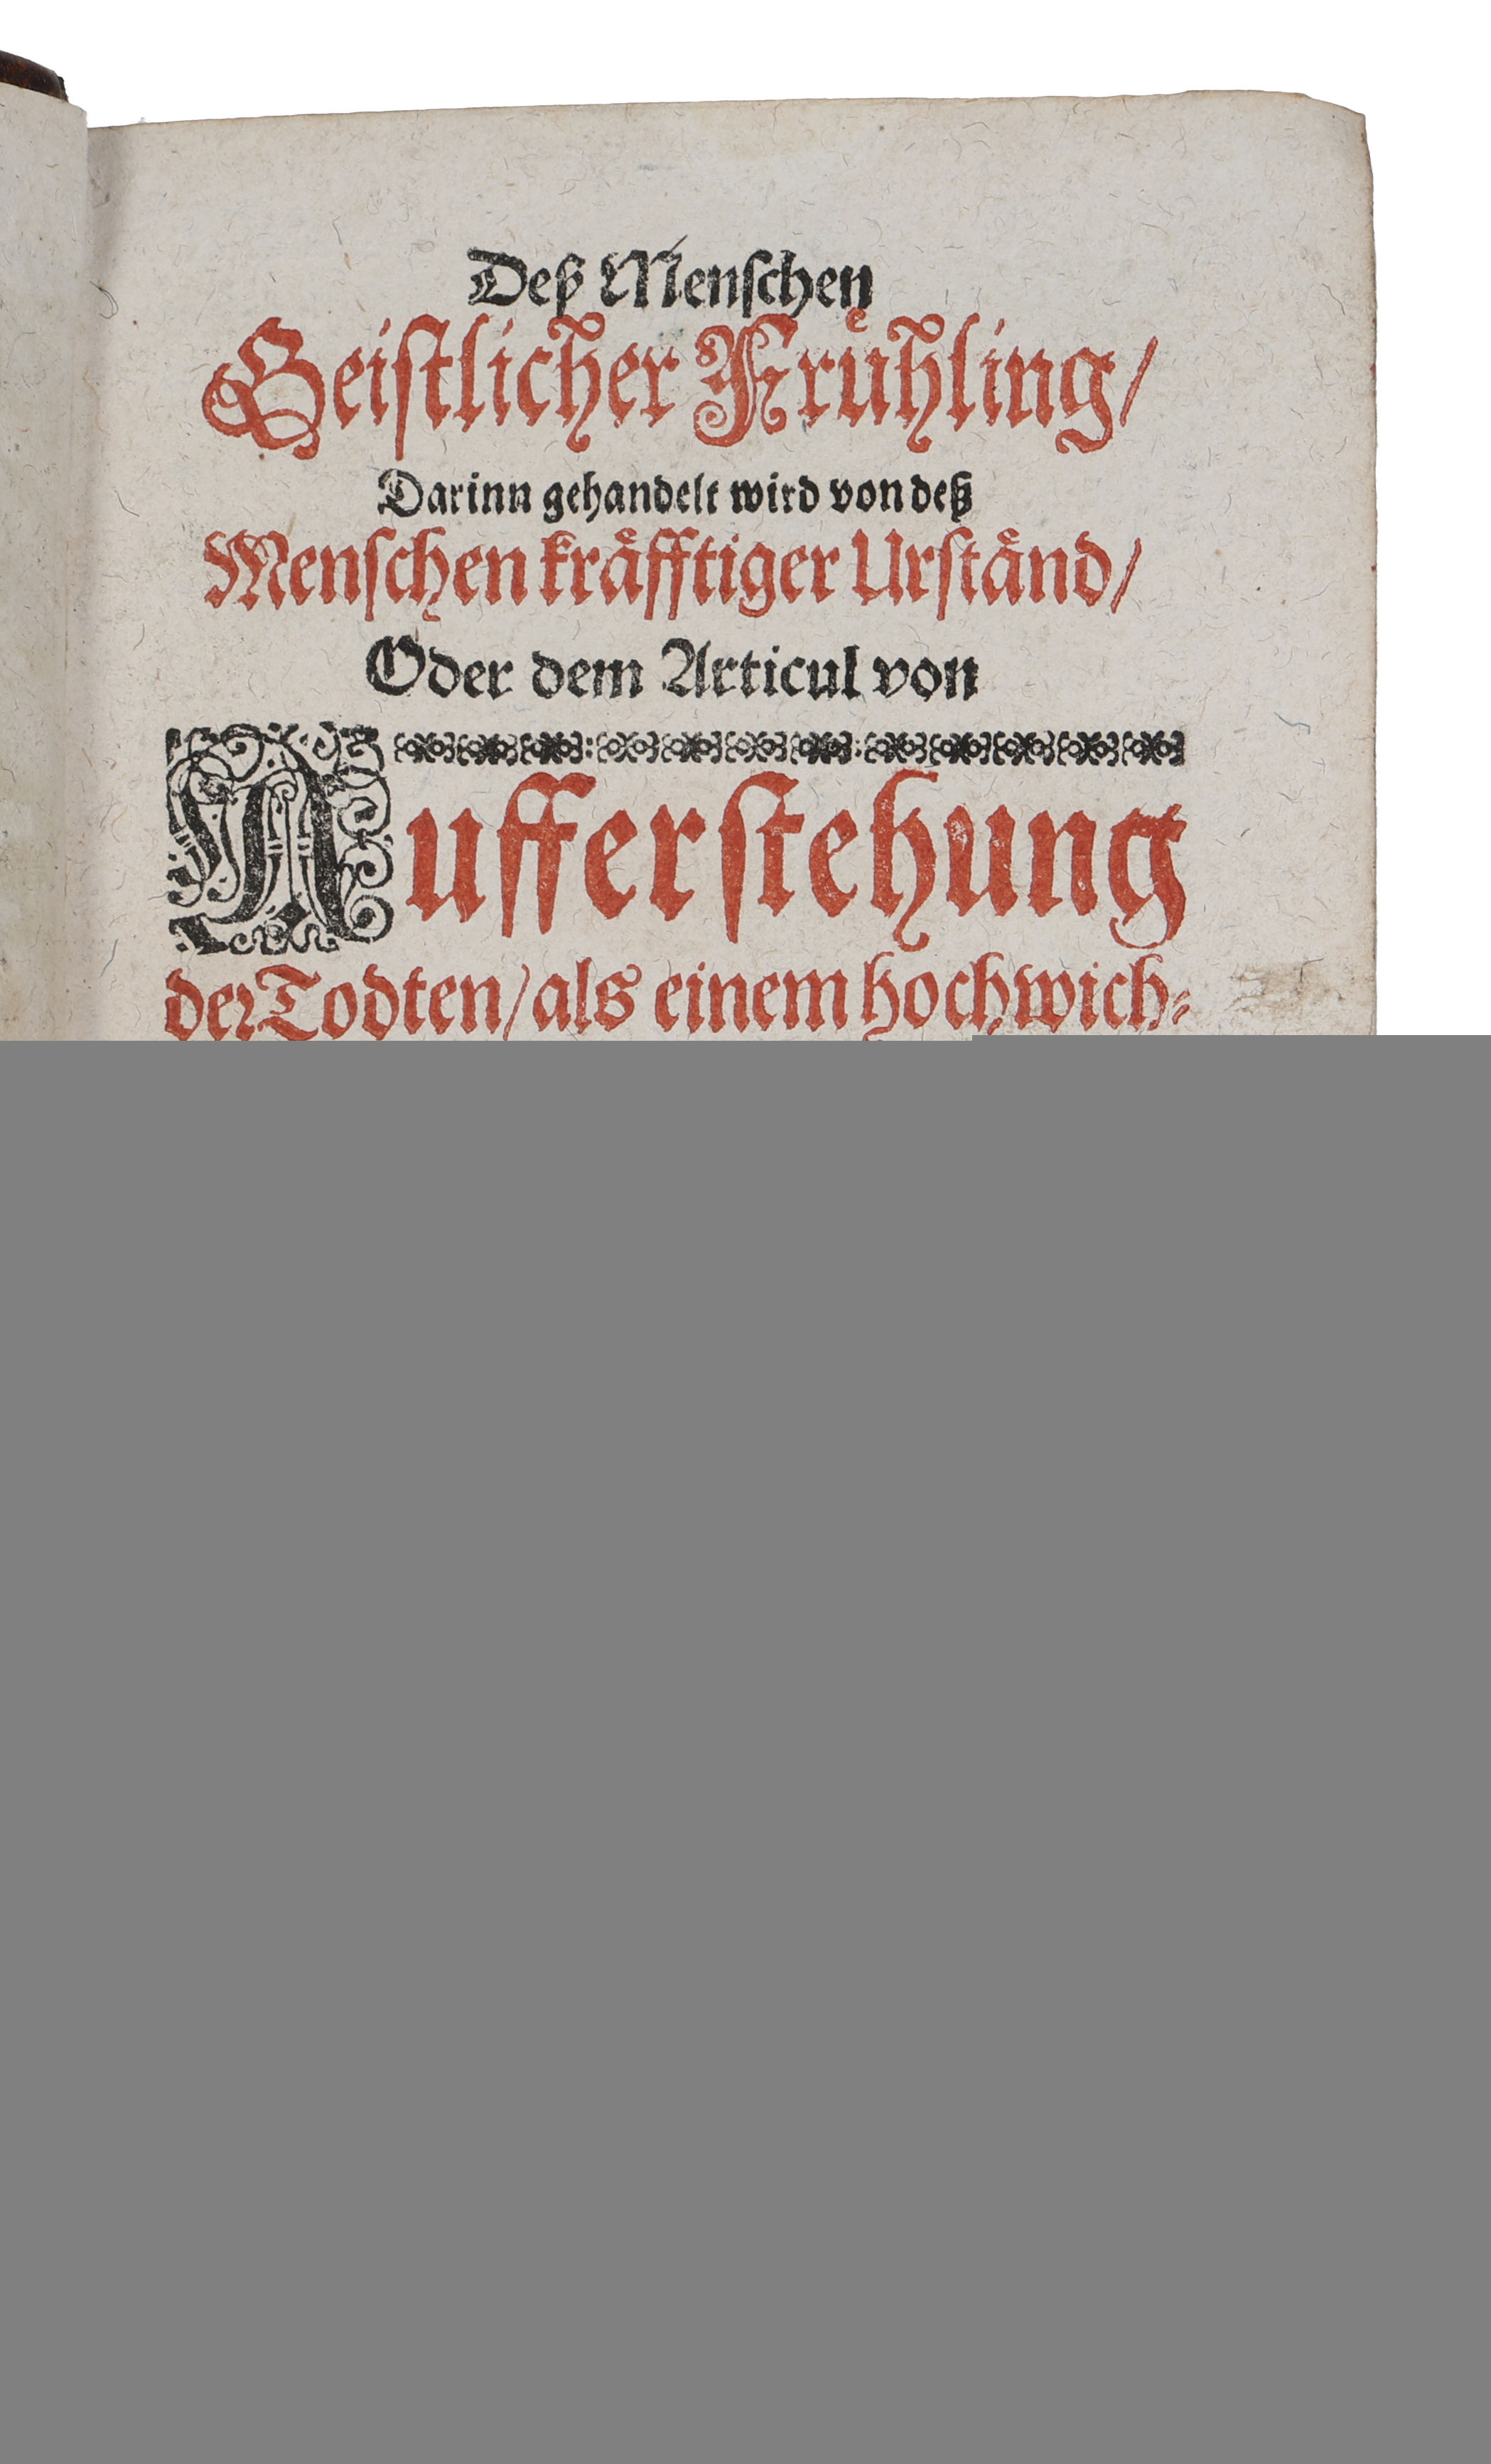 Deß Menschen
Geistlicher Fruͤhling/
Darinn gehandelt wird von deß
Menschen kraͤfftiger Urstaͤnd/
Oder dem Articul von
Aufferstehung
der Todten/als einem hochwich⸗